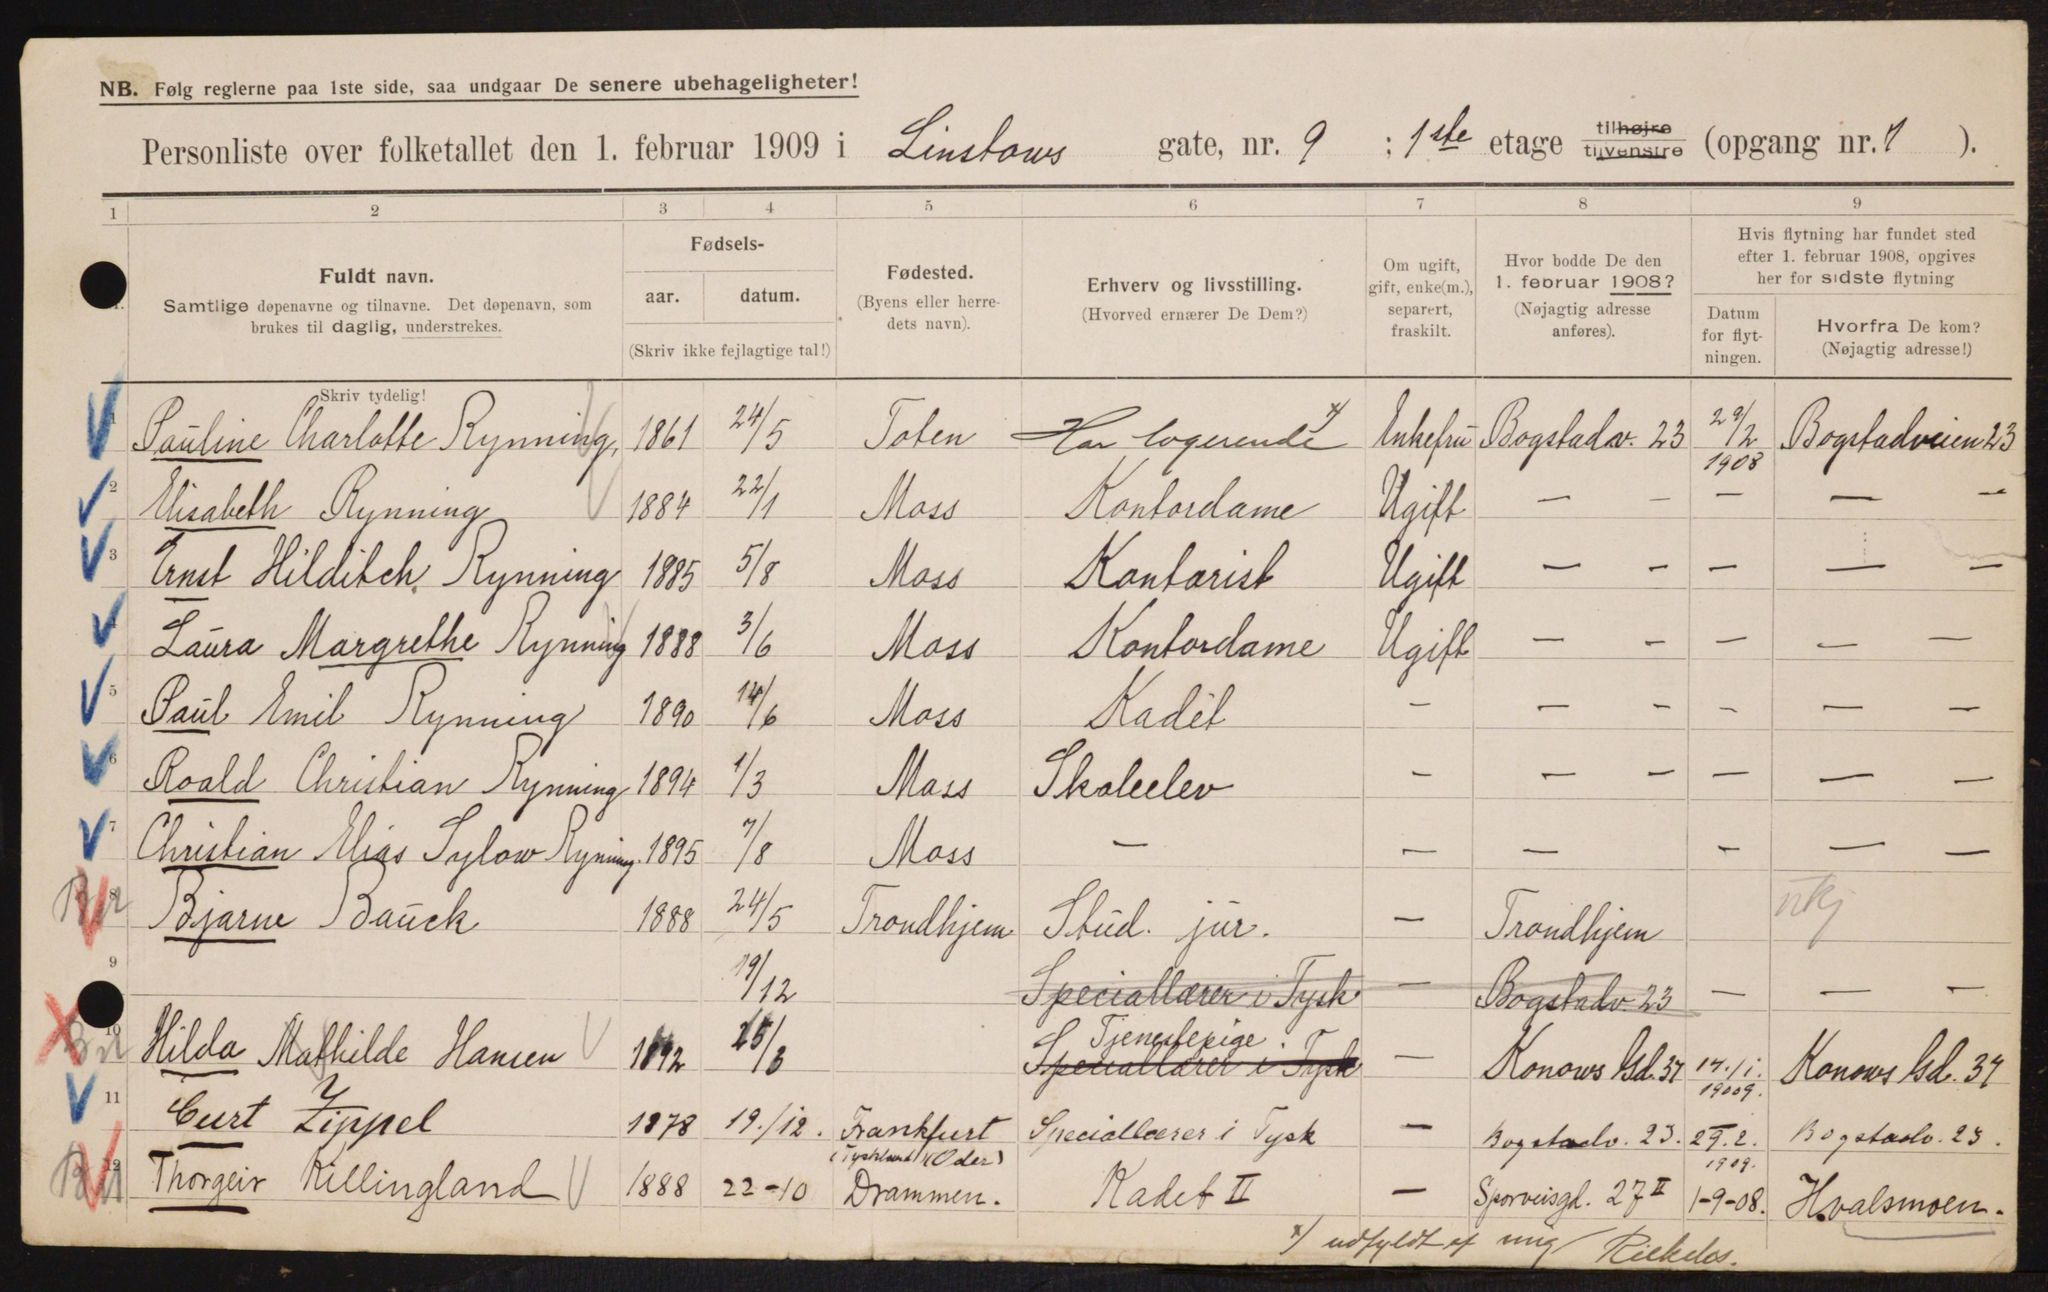 NB. Følg reglerne paa 1ste side, saa undgaar De senere ubehageligheter!
Personliste over folketallet den 1. februar 1909 i Linstows gate, nr. 9 ; 1ste etage tilhøjre tilvenstre (opgang nr. 1 ).
1 2 3 4 5 6 7 8 9
Fuldt navn.
Samtlige døpenavne og tilnavne. Det døpenavn, som
brukes til daglig, understrekes.
Skriv tydelig!
Fødsels-
aar. datum.
(Skriv ikke fejlagtige tal!)
Fødested.
(Byens eller herre-
dets navn).
Erhverv og livsstilling.
(Hvorved ernærer De Dem?)
Om ugift,
gift, enke(m.),
separert,
fraskilt.
Hvor bodde De den
1. februar 1908?
(Nøjagtig adresse
anføres).
Hvis flytning har fundet sted
efter 1. februar 1908, opgives
her for sidste flytning
Datum
for flyt-
ningen.
Hvorfra De kom?
(Nøjagtig adresse!)
1 Pauline Charlotte Rynning, 1861 24/5 Toten Har logerende x/ Enkefru Bogstadv. 23 29/2 1908 Bogstadveien 23
2 Elisabeth Rynning 1884 22/1 Moss Kontordame Ugift — — — — —
3 Ernst Hilditch Rynning 1885 5/8 Moss Kontorist Ugift — — — — —
4 Laura Margrethe Rynning 1888 3/6 Moss Kontordame Ugift — — — — —
5 Paul Emil Rynning 1890 14/6 Moss Kadet — — — — — —
6 Roald Christian Rynning 1894 1/3 Moss Skoleelev — — — — — —
7 Christian Elias Sylow Rynning. 1895 7/8 Moss — — — — — —
8 Bjarne Bauck 1888 24/5 Trondhjem Stud. jur. — Trondhjem
9 19/12 Speciallærer i Tysk — Bogstadv. 23 — — —
10 Hilda Mathilde Hansen 1892 25/3 Tjenestepige Speciallærer i Tysk — Konows Gd. 37 17./1. 19009. Konows Gd. 37
11 Curt Zippel 1878 19./12. Frankfurt (Oder) Speciallærer i Tysk — Bogstadv. 23. 29.2. 1909. Bogstadv. 23.
12 Thorgeir Killingland 1888 22-10 Drammen. Kadet II — Sporveisgd. 27 II 1-9-08. Hvalsmoen.
x/ udfyldt af mig